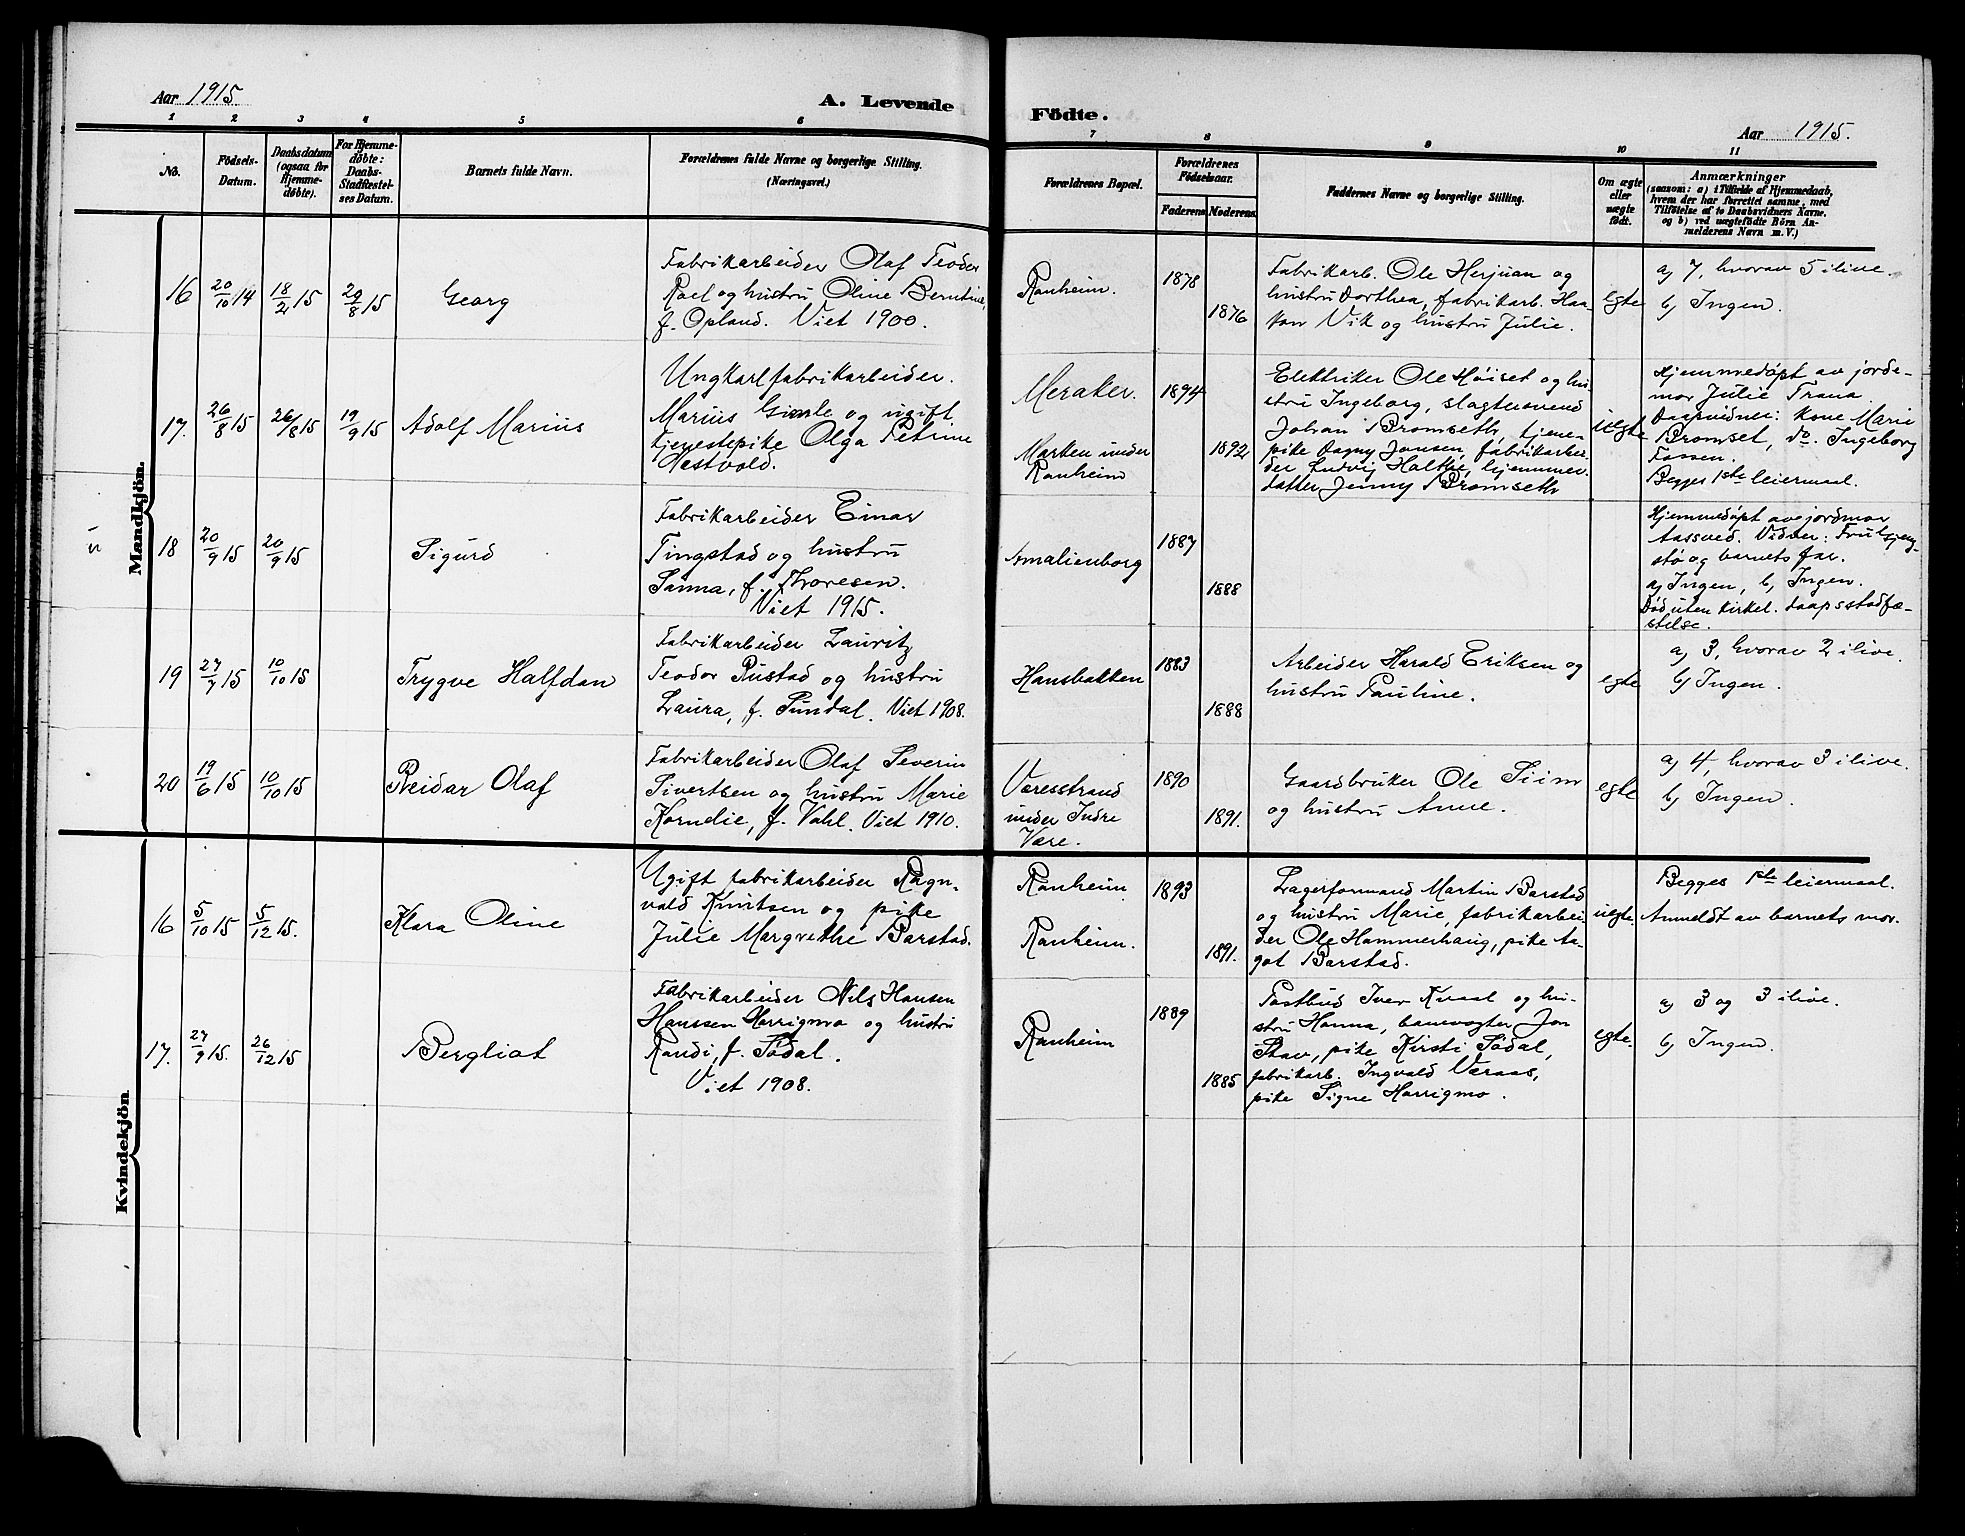 Aar 1915.
A. Levende
Födte.
Aar 1915.
1 2 3 4 5 6 7 8 9 10 11
No.
Födsels-
Datum.
Daabsdatum
(ogsaa for
Hjemme-
døbte).
For Hjemme-
døbte:
Daabs-
Stadfæstel-
ses Datum.
Barnets fulde Navn.
Forældrenes fulde Navne og borgerlige Stilling.
(Næringsvei.)
Forældrenes Bopæl.
Forældrenes
Fødselsaar.
Faderens
Moderens
Faddernes Navne og borgerlige Stilling.
Om ægte
eller
uægte
født.
Anmærkninger
(saasom: a) i Tilfælde af Hjemmedaab,
hvem der har forrettet samme, med
Tilføielse af to Daabsvidners Navne,
og b) ved uægtefødte Börn An-
melderens Navn m. V.)
Mandkjön.
16
20/10 14
18/2 15
29/8 15
Georg
Fabrikarbeider Olaf Teodor
Roel og hustru Oline Berntine,
f. Opland. Viet 1900.
Ranheim.
1878
1876
Fabrikarb. Ole Herjuan og
hustru Dorthea, fabrikarb. Haa-
kon Vik og hustru Julie.
egte
a) 7, hvorav 5 ilive.
b) Ingen.
17.
26/8 15
26/8 15
19/9 15
Adolf Marius
Ungkarl fabrikarbeider
Marius Gimle og ugift
tjenestepike Olga Petrine
Hestvold.
Meraker.
Marken under
Ranheim
1894
1892
Elektriker Ole Höiset og hu-
stru Ingeborg, slagtersvend
Johan Bromseth, tjene-
pike Dagny Jonsen, fabrikarbei-
der Ludvig Halthe, hjemmev.
datter Jenny Bromseth
uegte
Hjemmedøpt av jorde-
mor Julie Trana.
Daapsvidner: kone Marie
Bromset, do. Ingeborg
Fossen.
Begges 1ste leiermaal.
18
20/9 15
20/9 15
Sigurd
Fabrikarbeider Einar
Tingstad og hustru
Sanna, f. Thoresen.
Viet 1915.
Amalienborg
1887
1888
Hjemmedøpt av jordmor
Aassved. Vidner: Fru
stø og barnets far.
a) Ingen, b) Ingen.
Død uten kirkel. daapsstadfæ-
stelse.
19
27/7 15
10/10 15
Trygve Halfdan
Fabrikarbeider Lauritz
Teodor Rustad og hustru
Laura, f. Sundal. Viet 1908.
Hansbakken
1883
1888
Arbeider Harald Eriksen og
hustru Pauline.
egte
a) 3, hvorav 2 ilive.
b) Ingen.
20
19/6 15
10/10 15
Reidar Olaf
Fabrikarbeider Olaf Severin
Sivertsen og hustru Marie
Kornelie, f. Vahl. Viet 1910.
Væresstrand
under Indre
Være.
1890
1891.
Gaardbruker Ole Siim
og hustru Anne.
egte
a) 4, hvorav 3 ilive.
b) Ingen.
Kvindekjön
16
5/10 15
5/12 15.
Klara Oline
Ugift fabrikarbeider Ragn-
vald Knutsen og pike
Julie Margrethe Barstad.
Ranheim
Ranheim.
1893
1891.
Lagerformand Martin Barstad
og hustru Marie, fabrikarbei-
der Ole Hammerhaug, pike Aa-
got Barstad.
uegte.
Begges 1ste leiermaal.
Anmeldt av barnets mor.
17.
27/9 15.
26/12 15
Bergliot
Fabrikarbeider Nils Hansen
Hanssen Harrigmo og hustru
Randi, f. Södal.
Viet 1908.
Ranheim
1889
1885
Postbud Iver Kvaal og hu-
stru Hanna, banevogter Jon
Stav, pike Kirsti Södal,
fabrikarb. Ingvald Væraas,
pike Signe Harrigmo.
egte.
a) 3 og 3 ilive.
b) Ingen.